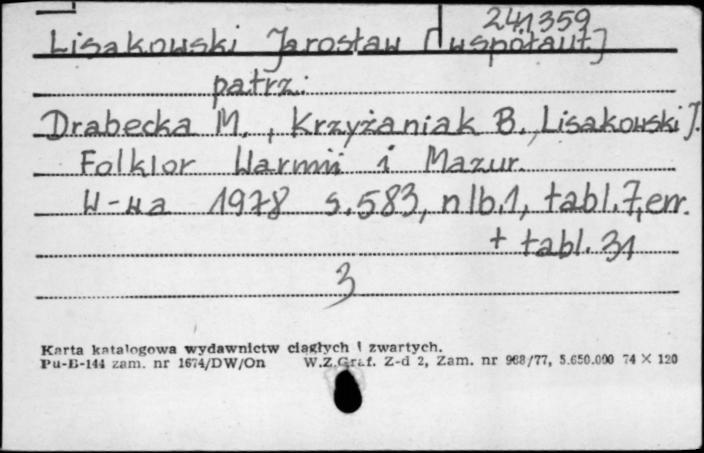 241359
Lisakowski Jarosław [współaut.]
patrz:
Drabecka M., Krzyżaniak B., Lisakowski J.
Folklor Warmii i Mazur.
W-wa 1978 s.583, nlb.1, tabl.7, err.
+ tabl. 31
3
Karta katalogowa wydawnictw ciągłych i zwartych.
Pu-B-144 zam. nr 1674/DW/On W.Z.Graf. Z-d 2, Zam. nr 968/77, 5.650.000 74 × 120